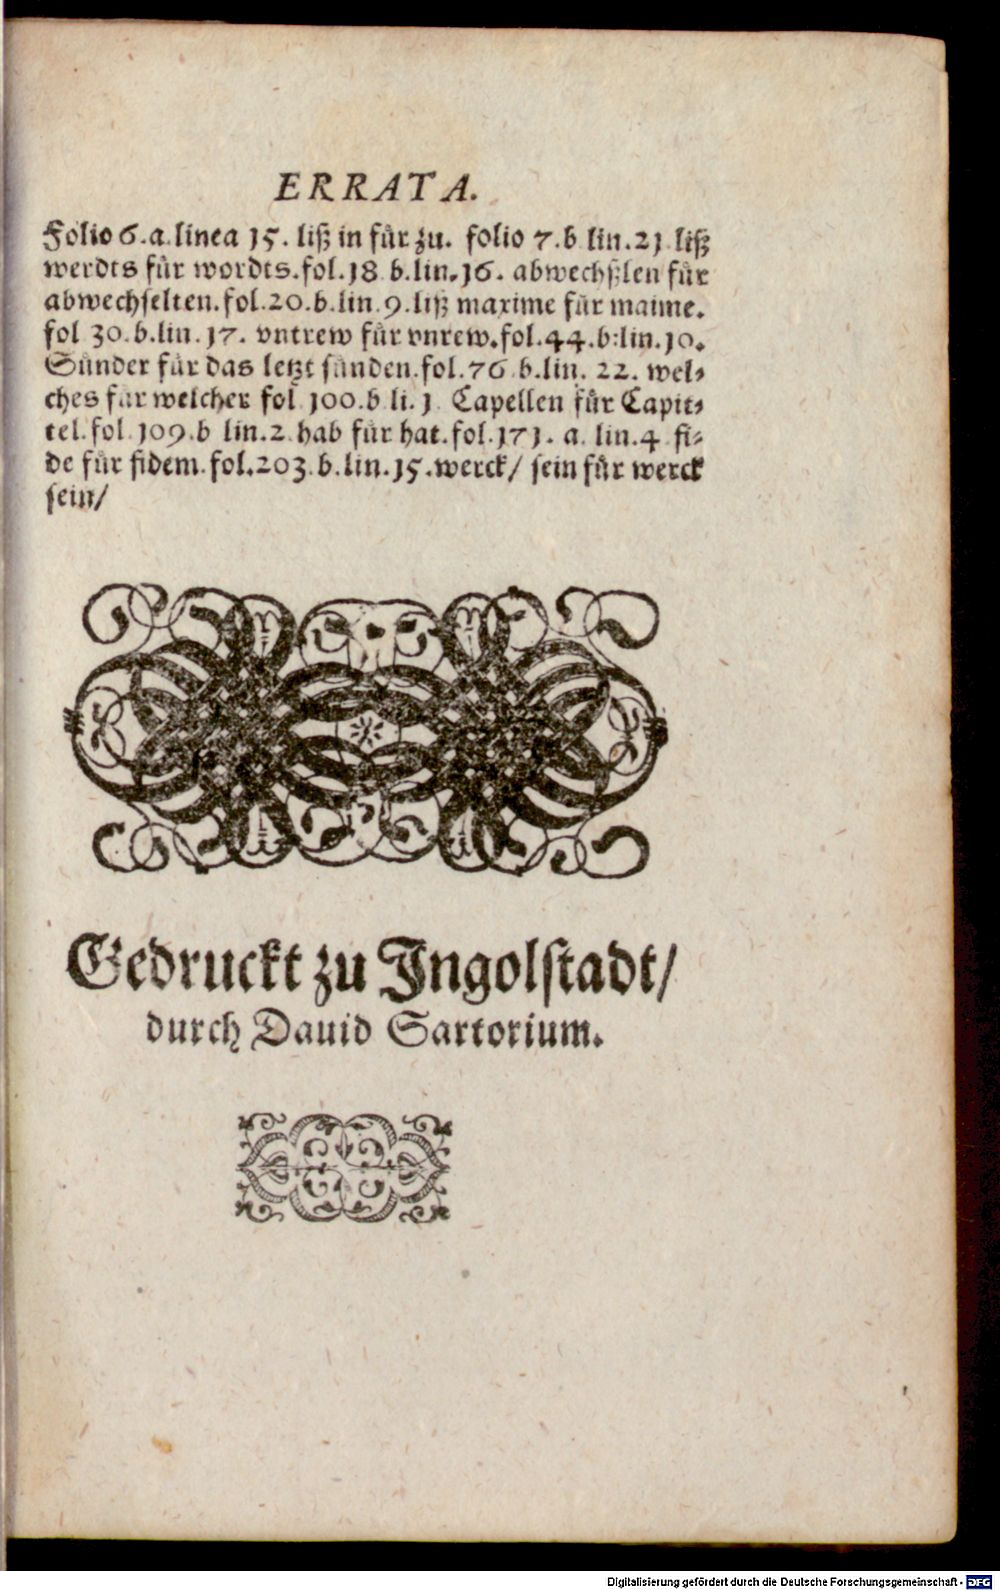 ERRATA.
Folio 6.a.linea 15. liß in für zu. folio 7.b lin.21 liß
werdts für wordts.fol.18 b.lin.16. abwechßlen für
abwechselten.fol.20.b.lin.9.liß maxime für maime.
fol 30.b.lin.17. vntrew für vnrew.fol.44.b:lin.10.
Sünder für das letzt sünden.fol.76 b.lin. 22. wel-
ches für welcher fol 100.b li.1 Capellen für Capit-
tel.fol 109.b lin.2 hab für hat.fol.171. a. lin.4 fi-
de für fidem.fol.203.b.lin.15.werck/ sein für werck
sein/
Gedruckt zu Ingolstadt/
durch Dauid Sartorium.
Digitalisierung gefördert durch die Deutsche Forschungsgemeinschaft - DFG